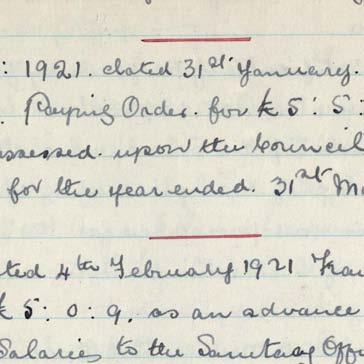 : 1921. dated 31st January.
. Paying Order. for £5 : 5 :
assessed. upon the Council
for the year ended. 31st Ma
ted 4th February 1921
£5 : 0 : 9. as an advance
Salaries to the Sanitary Off